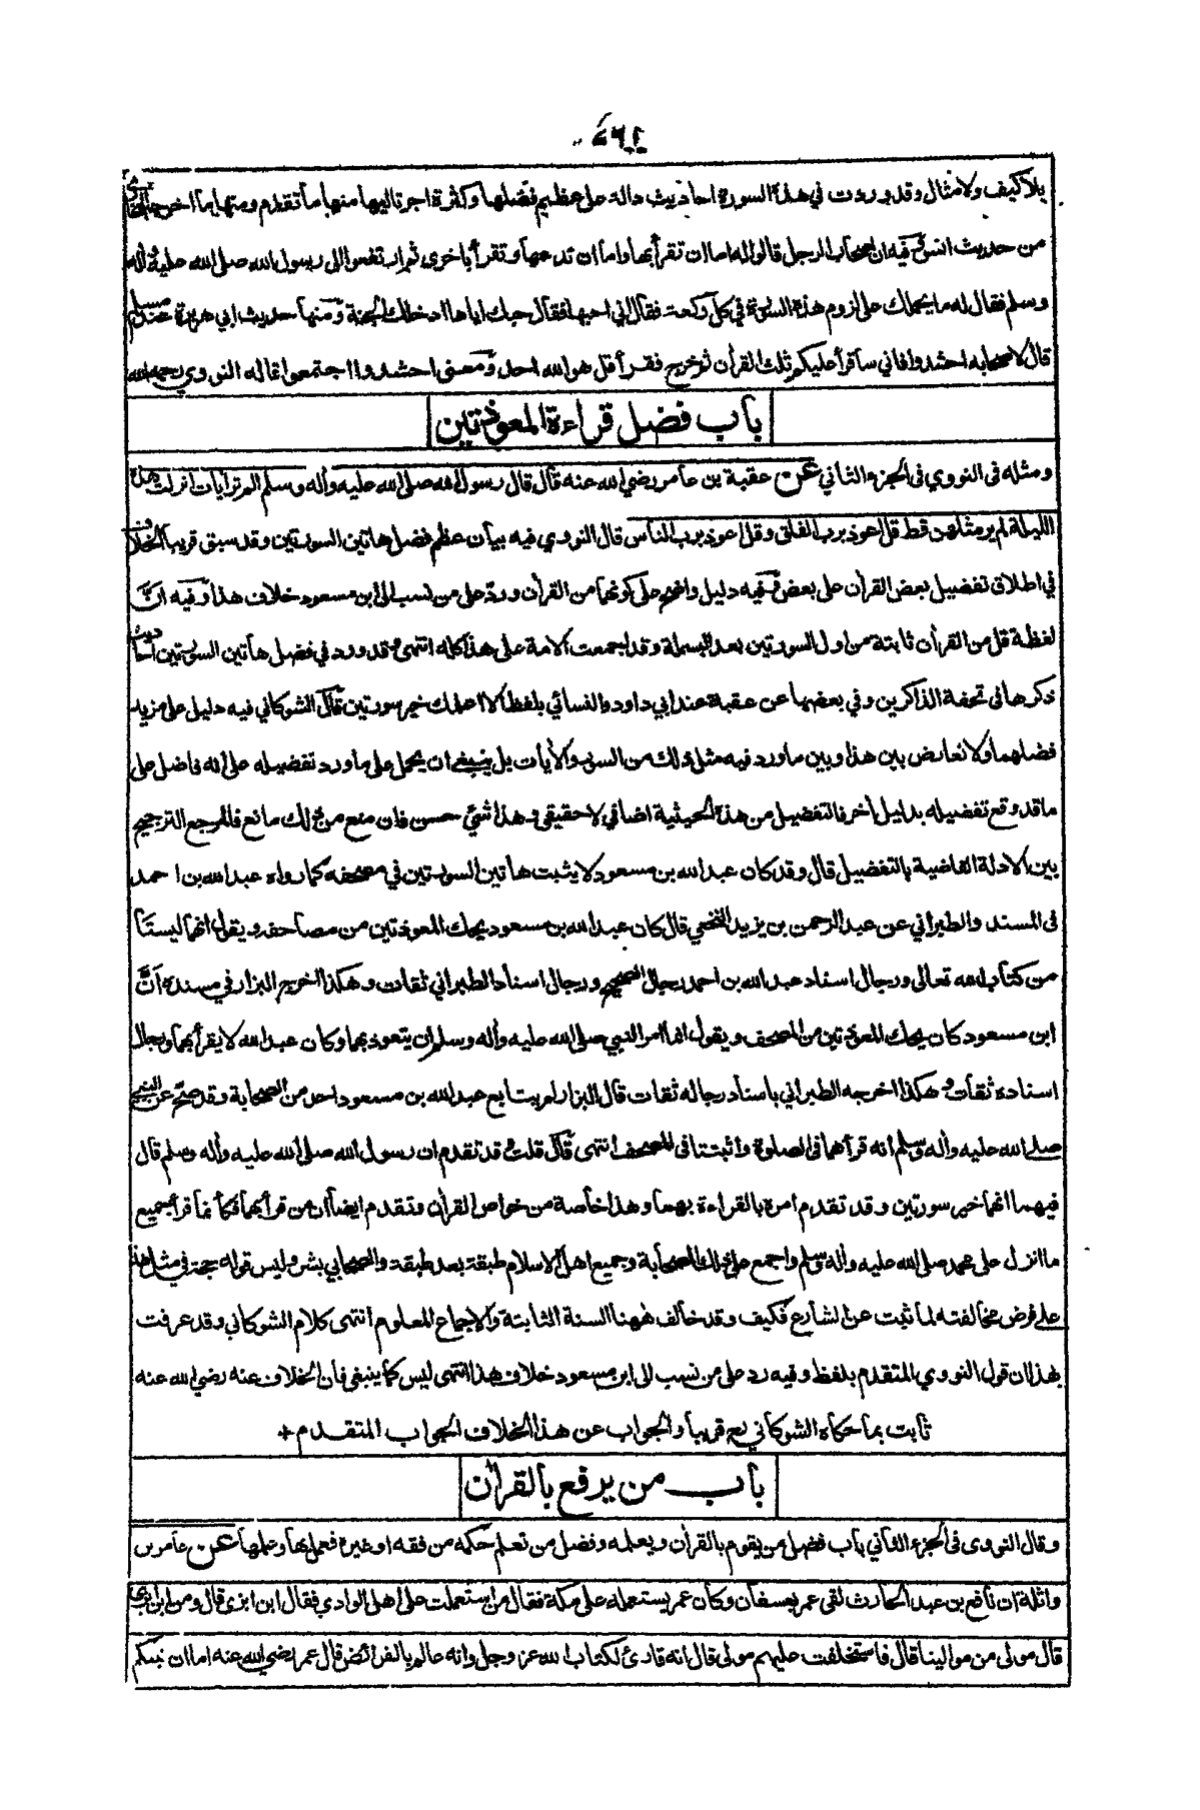 ٤٦٢
بلا كيف ولا مثال وقد وردت في هذه السورة احاديث دالة على عظيم فضلها وكثرة اجر تاليها منها ما تقدم ومنها ما اخرجه البخاري
من حديث انس وفيه ان اصحاب الرجل قالوا له اما ان تقرأ بها واما ان تدعها وتقرأ باخرى ثم ارتفعوا الى رسول الله صلى الله عليه واله
وسلم فقال له ما يحملك على لزوم هذه السورة في كل ركعة فقال اني احبها فقال حبك اياها ادخلك الجنة ومنها حديث ابي هريرة عند مسلم
قال لاصحابه احشدوا فاني ساقرأ عليكم ثلث القرأن ثم خرج فقرأ قل هو الله احد ومعنى احشدوا اجتمعوا قاله النووي رحمه الله
باب فضل قراءة المعوذتين
ومثله فى النووي فى الجزء الثاني عن عقبة بن عامر رضي الله عنه قال قال رسول الله صلى الله عليه وأله وسلم الم تر أيات انزلت هذه
الليلة لم ير مثلهن قط قل اعوذ برب الفلق وقل اعوذ برب الناس قال النووي فيه بيان عظم فضل هاتين السورتين وقد سبق قريبا الخلاف
في اطلاق تفضيل بعض القرأن على بعض وفيه دليل واضح على كونهما من القرأن ورد على من نسب الى ابن مسعود خلاف هذا وفيه ان
لفظة قل من القرأن ثابتة من اول السورتين بعد البسملة وقد اجمعت الامة على هذا كله انتهى وقد ورد في فضل هاتين السورتين احاديث
ذكرها فى تحفة الذاكرين وفي بعضها عن عقبة عند ابي داود والنسائي بلفظ الا اعلمك خير سورتين قال الشوكاني فيه دليل على مزيد
فضلهما ولا تعارض بين هذا وبين ما ورد فيه مثل ذلك من السور والأيات بل ينبغي ان يحمل على ما ورد تفضيله على انه فاضل على
ما قد وقع تفضيله بدليل أخر فالتفضيل من هذه الحيثية اضافي لا حقيقي وهذا شئ حسن فان منع من ذلك مانع فالمرجع الترجيح
بين الادلة القاضية بالتفضيل قال وقد كان عبد الله بن مسعود لا يثبت هاتين السورتين في مصحفه كما رواه عبد الله بن احمد
فى المسند والطبراني عن عبد الرحمن بن يزيد النخعي قال كان عبد الله بن مسعود يحك المعوذتين من مصاحفه ويقول انهما ليستا
من كتاب الله تعالى ورجال اسناد عبد الله بن احمد رجال الصحيح ورجال اسناد الطبراني ثقات وهكذا اخرج البزار في مسنده ان
ابن مسعود كان يحك المعوذتين من المصحف ويقول انما امر النبي صلى الله عليه وأله وسلم ان يتعوذ بهما وكان عبد الله لا يقرأ بهما ورجال
اسناده ثقات وهكذا اخرجه الطبراني باسناد رجاله ثقات قال البزار لم يتابع عبد الله بن مسعود احد من الصحابة وقد صح عن النبي
صلى الله عليه وأله وسلم انه قرأهما في الصلوة وأثبتتا فى المصحف انتهى قال قلت وقد تقدم ان رسول الله صلى الله عليه وأله وسلم قال
فيهما انهما خير سورتين وقد تقدم امره بالقراءة بهما وهذا خاصة من خواص القرأن وتقدم ايضا ان من قرأ بهما فكأنما قرأ بجميع
ما انزل على محمد صلى الله عليه وأله وسلم واجمع على ذلك الصحابة وجميع اهل الاسلام طبقة بعد طبقة والصحابي بشر وليس قوله حجة في مثل هذا
على فرض مخالفته لما ثبت عن الشارع فكيف وقد خالف ههنا السنة الثابتة والاجماع المعلوم انتهى كلام الشوكاني وقد عرفت
بهذا ان قول النووي المتقدم بلفظ وفيه رد على من نسب الى ابن مسعود خلاف هذا انتهى ليس كما ينبغي فان الخلاف عنه رضي الله عنه
ثابت بما حكاه الشوكاني رح قريبا والجواب عن هذا الخلاف الجواب المتقدم +
باب من يرفع بالقرأن
وقال النووى فى الجزء الثاني باب فضل من يقوم بالقرأن ويعلمه وفضل من تعلم حكمة من فقه او غيره فعمل بها وعلمها عن عامر بن
واثلة ان نافع بن عبد الحارث لقي عمر بعسفان وكان عمر يستعمله على مكة فقال من استعملت على اهل الوادي فقال ابن ابزى قال ومن ابن ابزى
قال مولى من موالينا قال فاستخلفت عليهم مولى قال انه قارئ لكتاب الله عز وجل وانه عالم بالفرائض قال عمر رضي الله عنه اما ان نبيكم